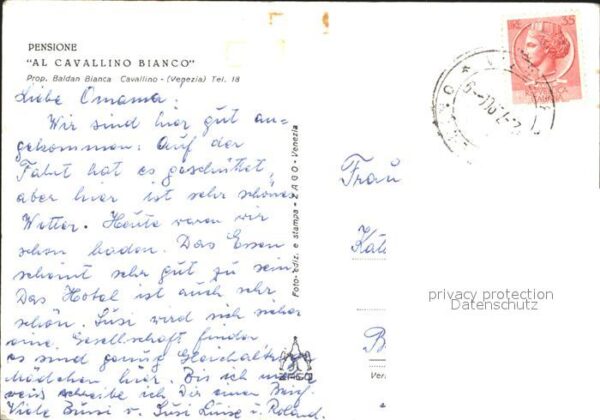 PENSIONE
"AL CAVALLINO BIANCO"
Prop. Baldan Bianca Cavallino - (Venezia) Tel. 18
Liebe Omama:
Wir sind hier gut an-
gekommen: Auf der
Fahrt hat es geschüttet,
aber hier ist sehr schönes
Wetter. Heute waren wir
schon baden. Das Essen
scheint sehr gut zu sein
Das Hotel ist auch sehr
schön. Susi wird sich sicher
eine Gesellschaft finden
es sind genug Gleichaltrige
Mädchen hier. Bis ich mehr
weiß schreibe ich Dir einen Brief.
Viele Bussi v. Susi Luise u. Roland.
Foto-ediz. e stampa - ZAGO - Venezia
LIRE 35
Frau
privacy protection
Datenschutz